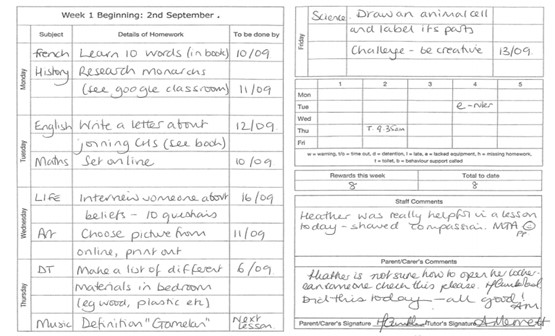 Week 1 Beginning: 2nd September.
Subject Details of Homework To be done by
Monday
French Learn 10 words (in book) 10/09
History Research monarchs
(see google classroom) 11/09
Tuesday
English Write a letter about 12/09
joining CHS (see book)
Maths Set online 10/09
Wednesday
LIFE Interview someone about 16/09
beliefs - 10 questions
Art Choose picture from 11/09
online, print out
Thursday
DT Make a list of different 6/09
materials in bedroom
(eg wood, plastic etc)
Music Definition "Gamelan" Next
Lesson
Friday
Science. Draw an animal cell
and label its parts
Challenge - be creative 13/09.
1 2 3 4 5
Mon
Tue e-ruler
Wed
Thu T. 9.35am
Fri
w = warning, t/o = time out, d = detention, l = late, e = lacked equipment, h = missing homework,
t = toilet, b = behaviour support called
Rewards this week Total to date
8 8
Staff Comments
Heather was really helpful in a lesson
today - showed compassion.
Parent/Carer's Comments
Heather is not sure how to open her locker.
can someone check this please.
Did this today - all good!
AM.
Parent/Carer's Signature Tutor's Signature